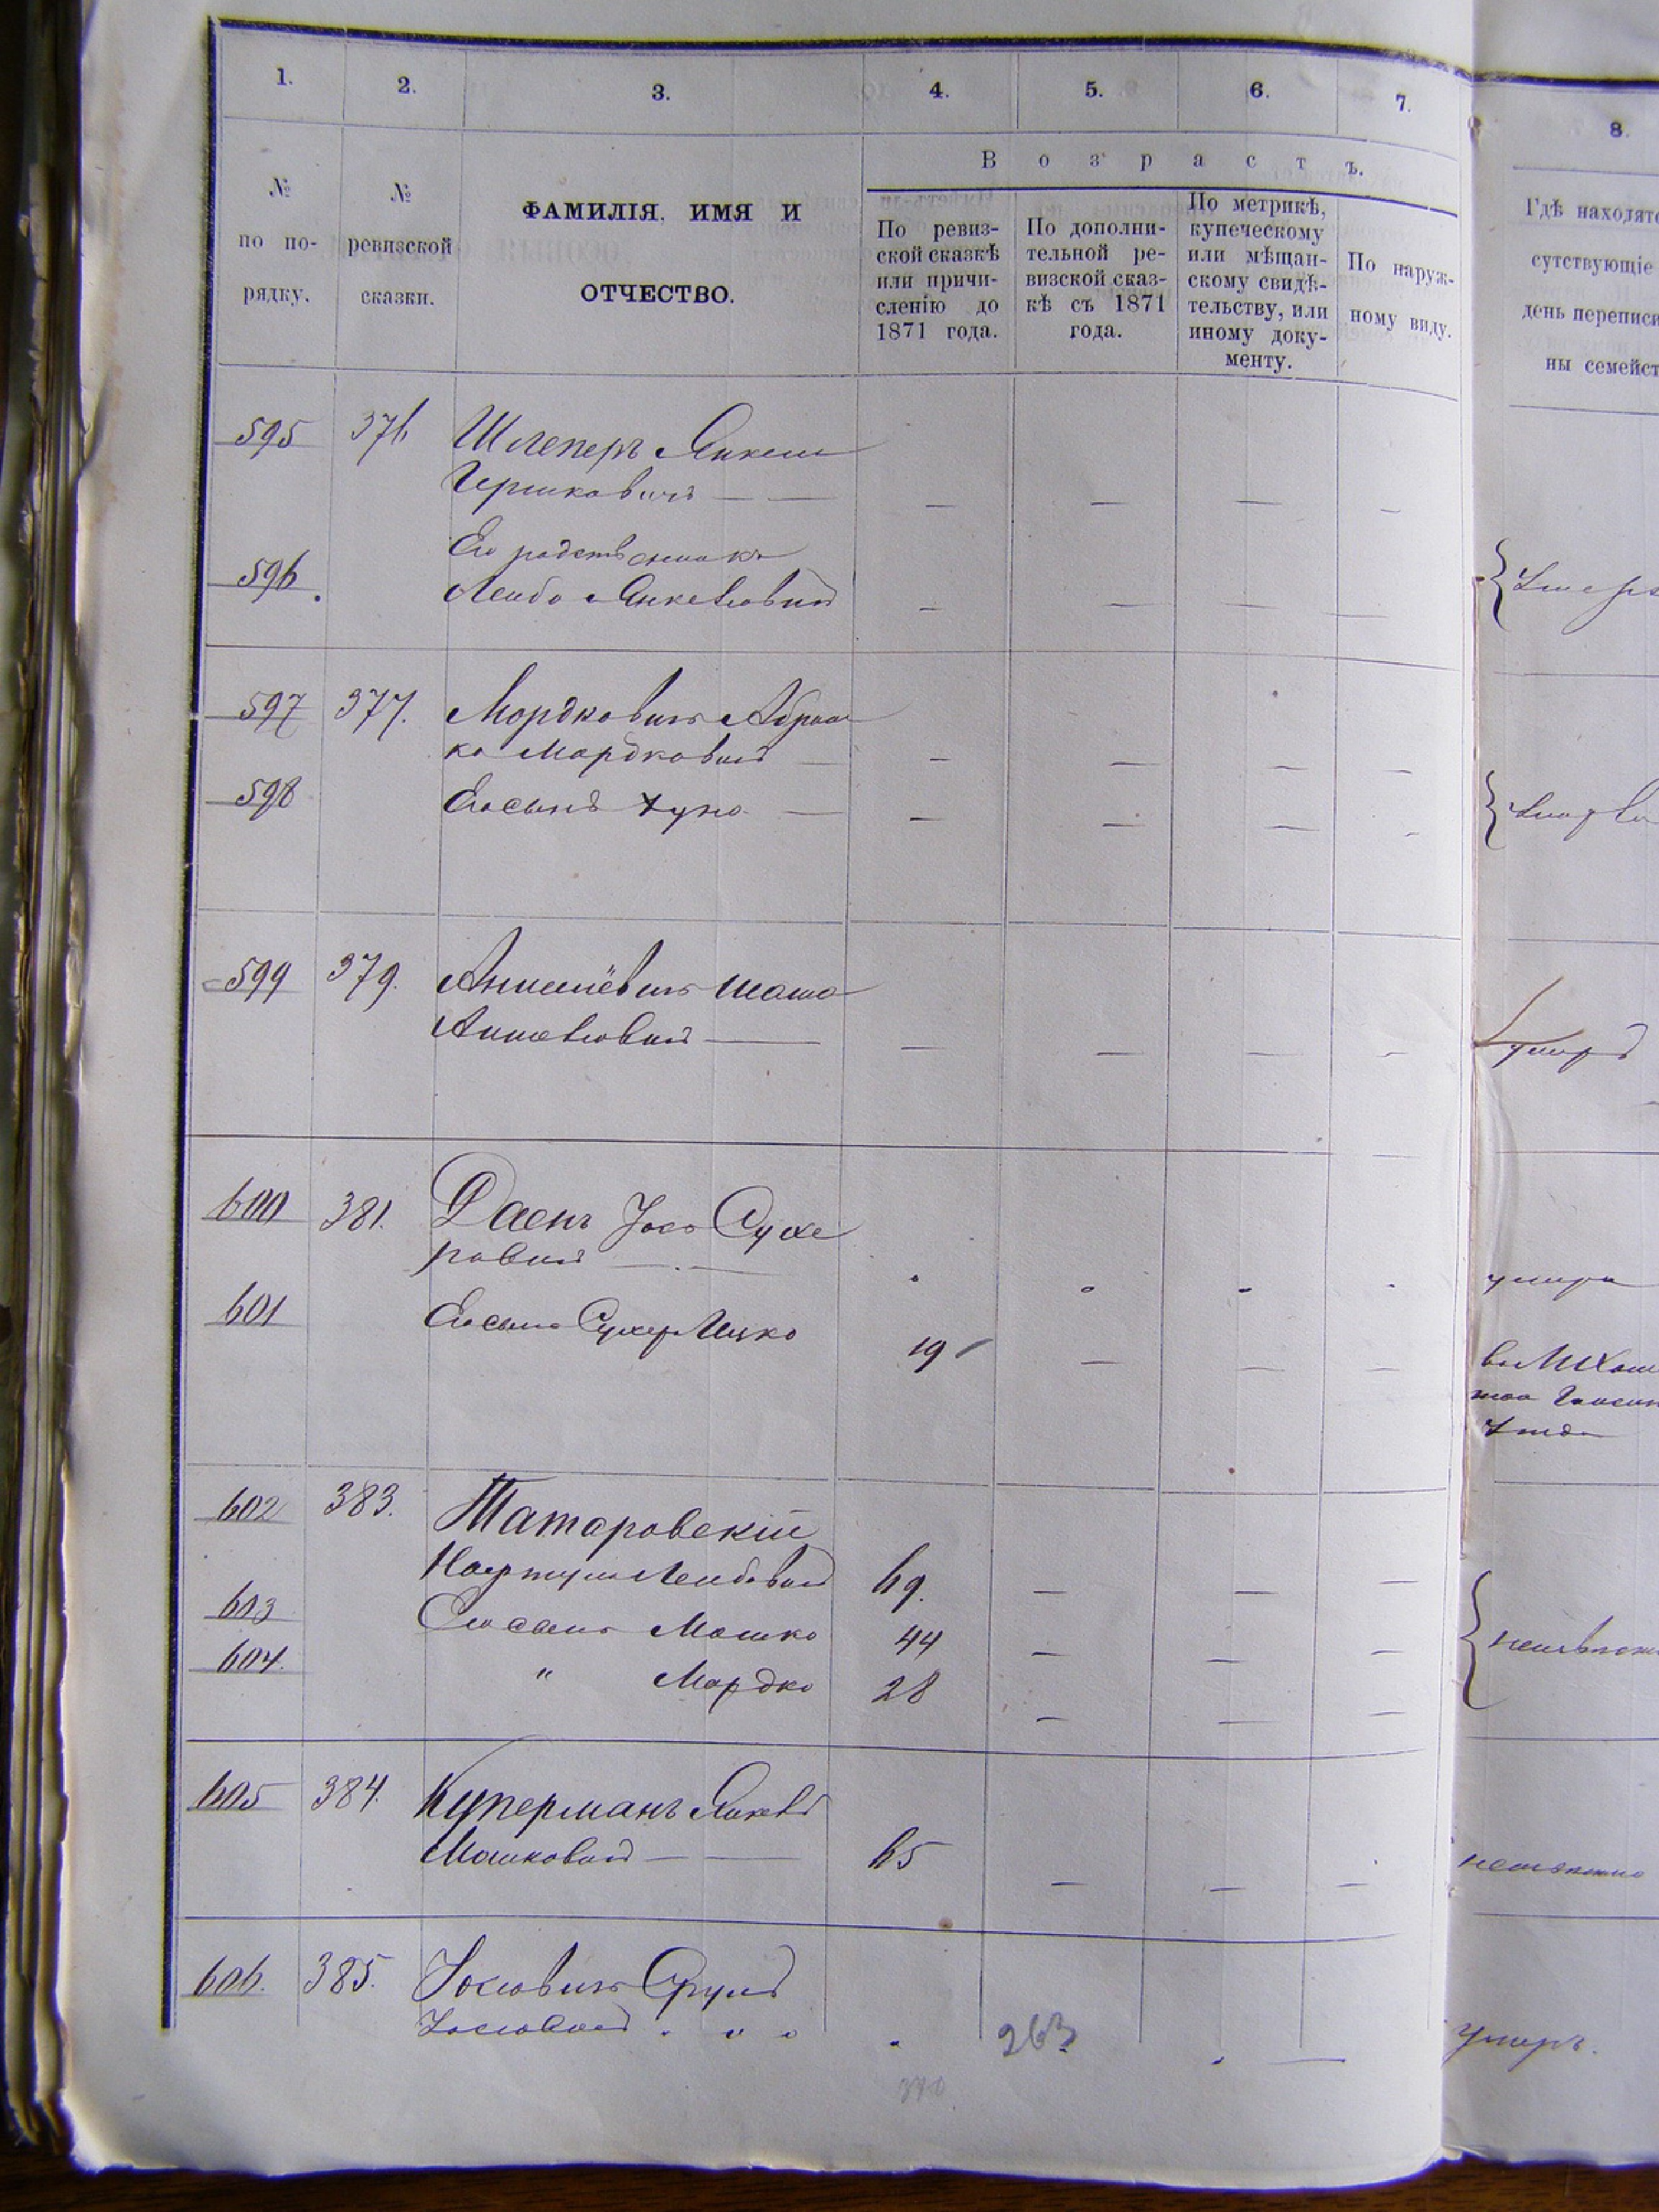 1. 2. 3. 4. 5. 6. 7. 8.
Возрастъ.
№ по порядку.
№ ревизской сказки.
ФАМИЛІЯ, ИМЯ И
ОТЧЕСТВО.
По ревиз-
ской сказкѣ
или причи-
сленію до
1871 года.
По дополни-
тельной ре-
визской сказ-
кѣ съ 1871
года.
По метрикѣ,
купеческому
или мѣщан-
скому свидѣ-
тельству, или
иному доку-
менту.
По наруж-
ному виду.
Гдѣ находятс
сутствующіе
день переписи
ны семейст
595 376 Шлеперъ Янкель
Гершковичъ — —
Его родственникъ
596. Лейба Янкелевичъ
597 377. Мордковичъ Абрам
ко Мордковичъ —
598 Его сынъ —
599 379. Шама
—
умеръ
600 381. Іось Сухе
ровичъ — —
умеръ
601 Его сынъ Сухер Ицко 19
602 383. Татаровскій
Нафтули Лейбовичъ 69.
603 Его сынъ Мошко 44
604. " Мордко 28
605 384. Куперманъ Янкель
Мошковичъ — — 65
606. 385. Іосіовичъ Срулъ
Іосіовичъ
умеръ.
263